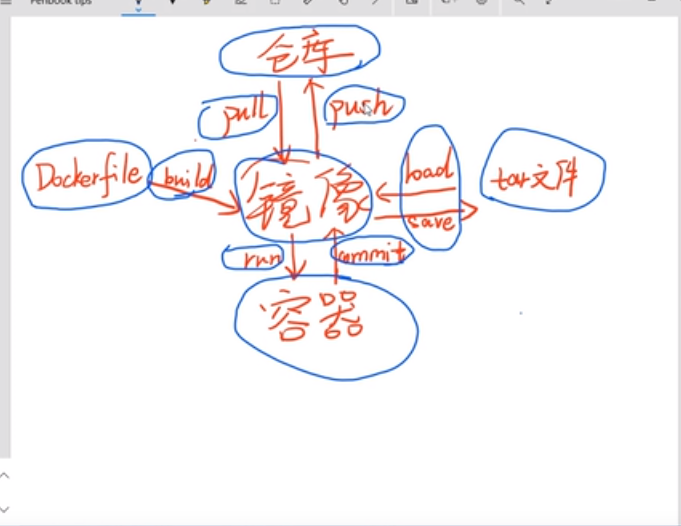 Penbook tips
仓库
pull
push
Dockerfile
build
镜像
load
save
tar文件
run
commit
容器